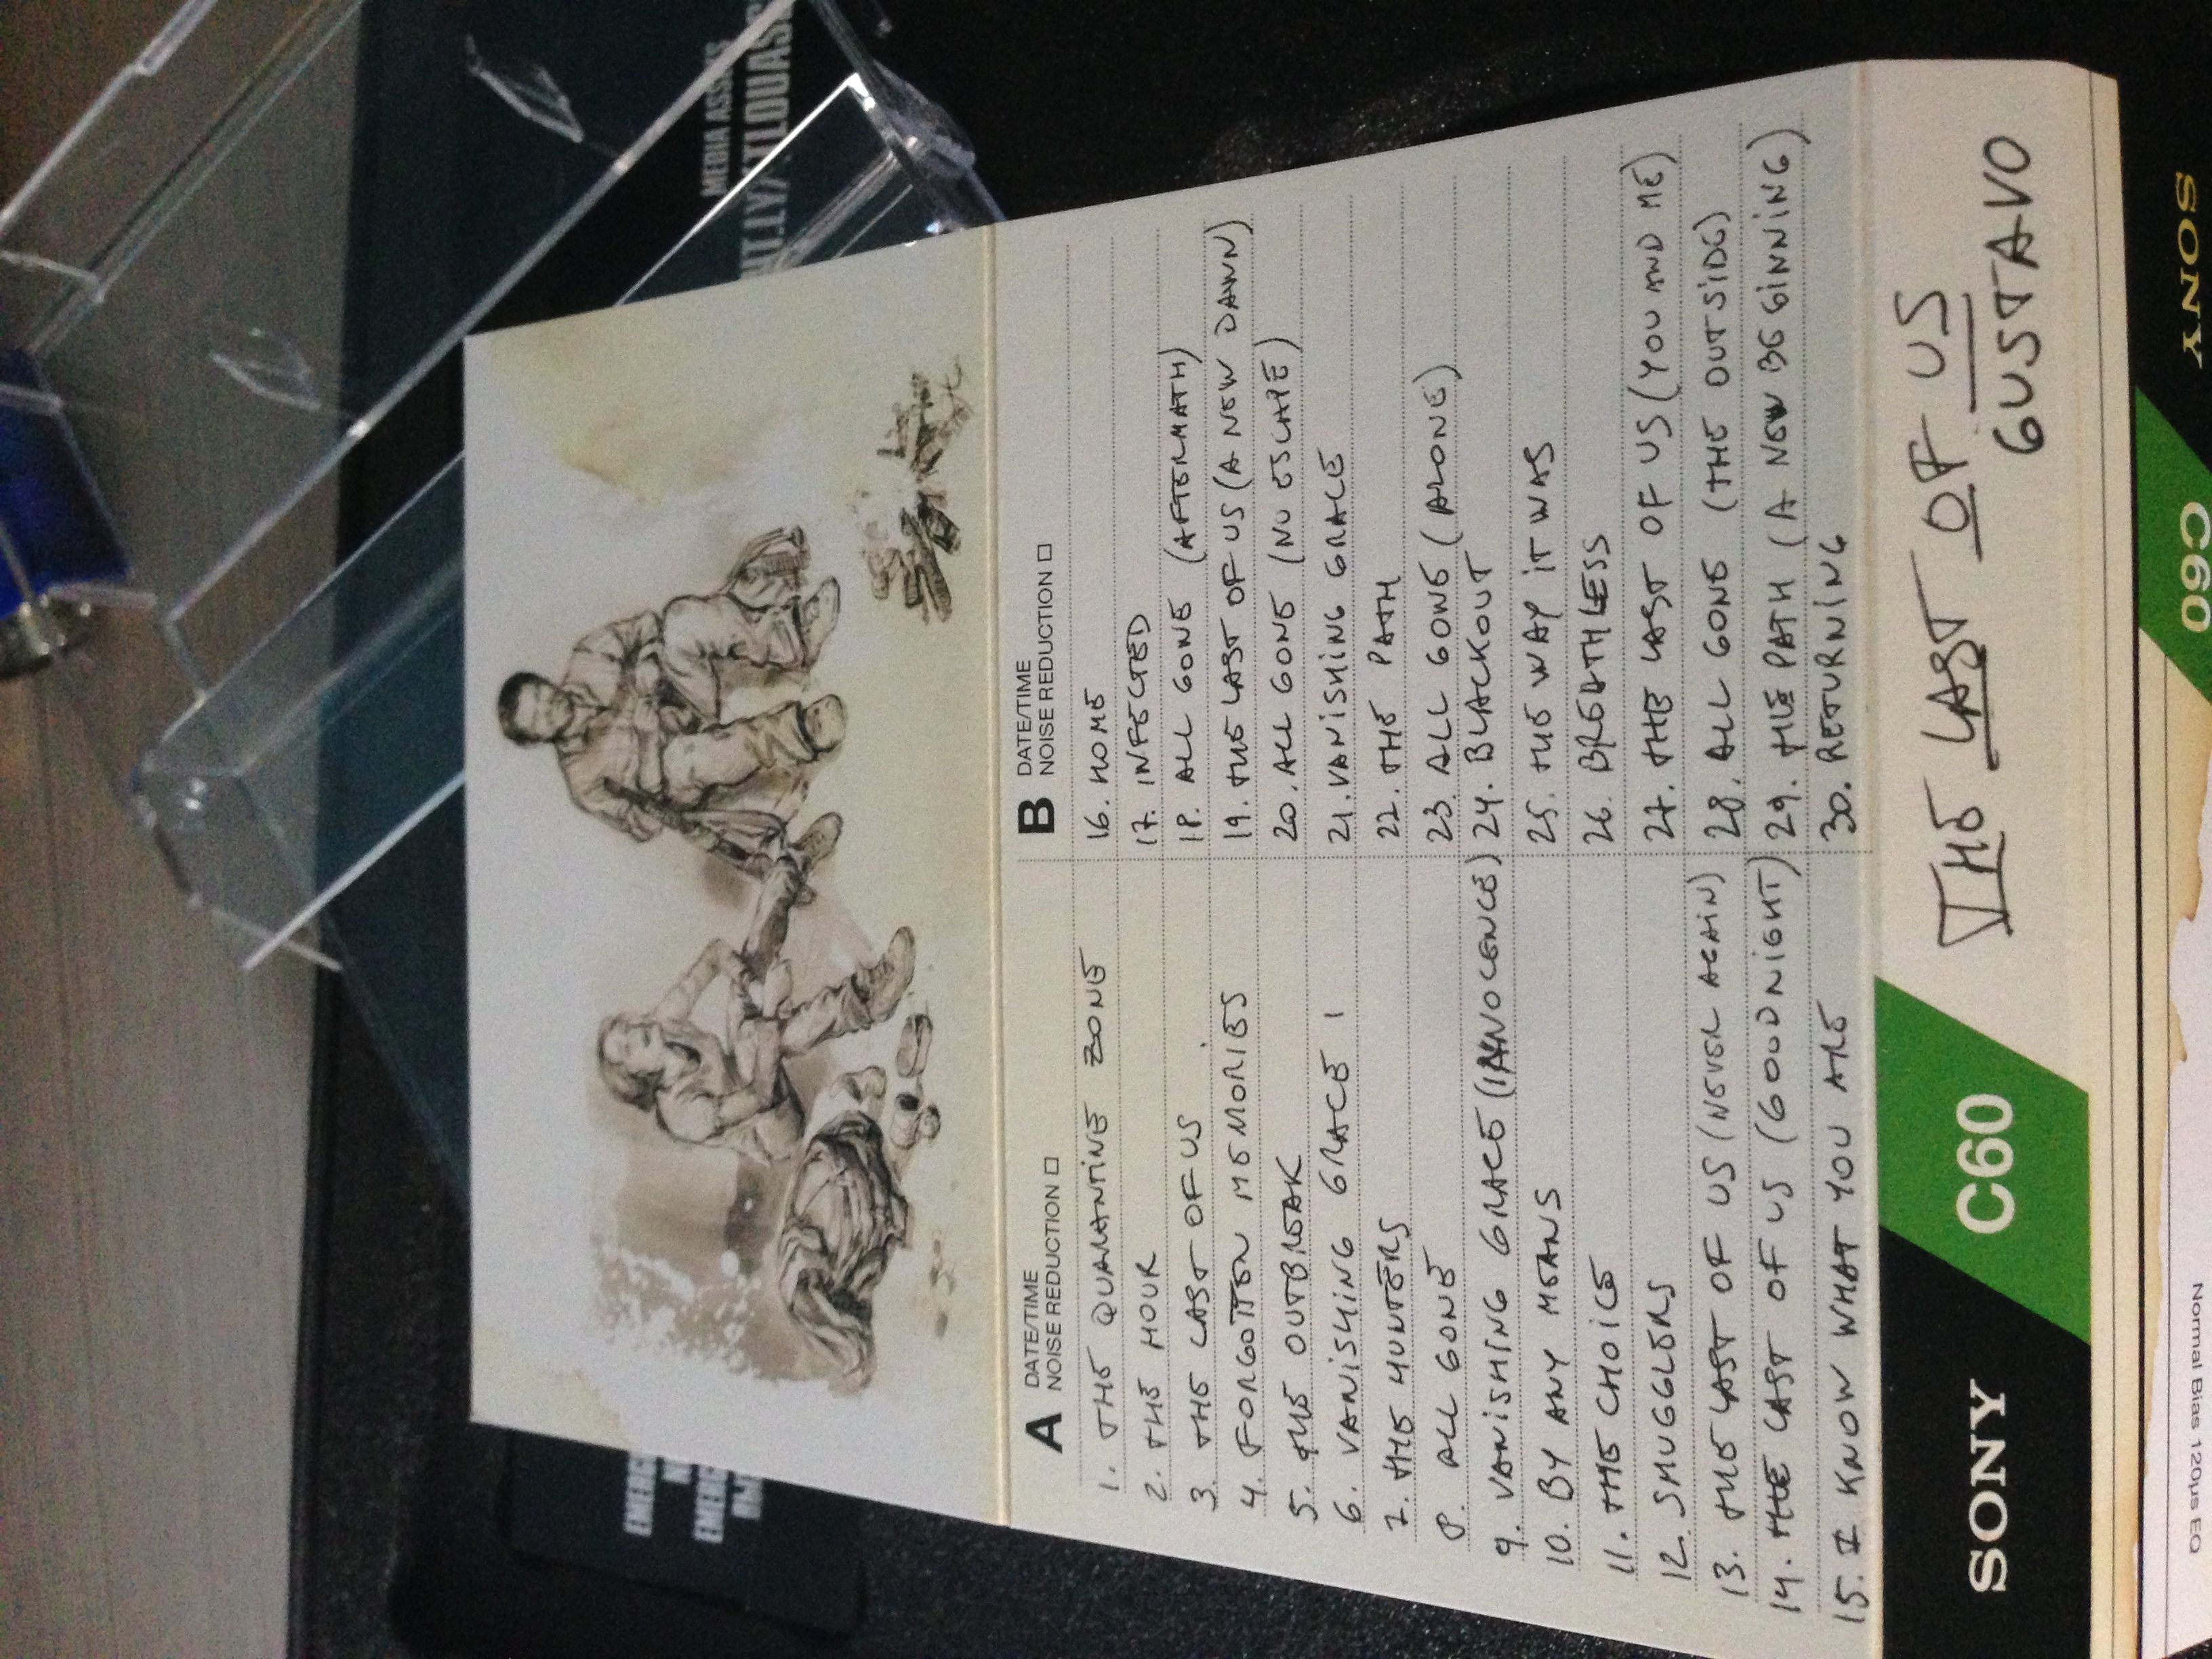 MEDIA ASSETS
A DATE/TIME
NOISE REDUCTION
1. THE QUARANTINE ZONE
2. THE HOUR
3. THE LAST OF US
4. FORGOTTEN MEMORIES
5. THE OUTBREAK
6. VANISHING GRACE 1
7. THE HUNTERS
8. ALL GONE
9. VANISHING GRACE (INNOCENCE)
10. BY ANY MEANS
11. THE CHOICE
12. SMUGGLERS
13. THE LAST OF US (NEVER AGAIN)
14. THE LAST OF US (GOODNIGHT)
15. I KNOW WHAT YOU ARE
B DATE/TIME
NOISE REDUCTION
16. HOME
17. INFECTED
18. ALL GONE (AFTERMATH)
19. THE LAST OF US (A NEW DAWN)
20. ALL GONE (NO ESCAPE)
21. VANISHING GRACE
22. THE PATH
23. ALL GONE (ALONE)
24. BLACKOUT
25. THE WAY IT WAS
26. BREATHLESS
27. THE LAST OF US (YOU AND ME)
28. ALL GONE (THE OUTSIDE)
29. THE PATH (A NEW BEGINNING)
30. RETURNING
SONY C60 THE LAST OF US
GUSTAVO
Normal Bias 120µs EQ C60 SONY